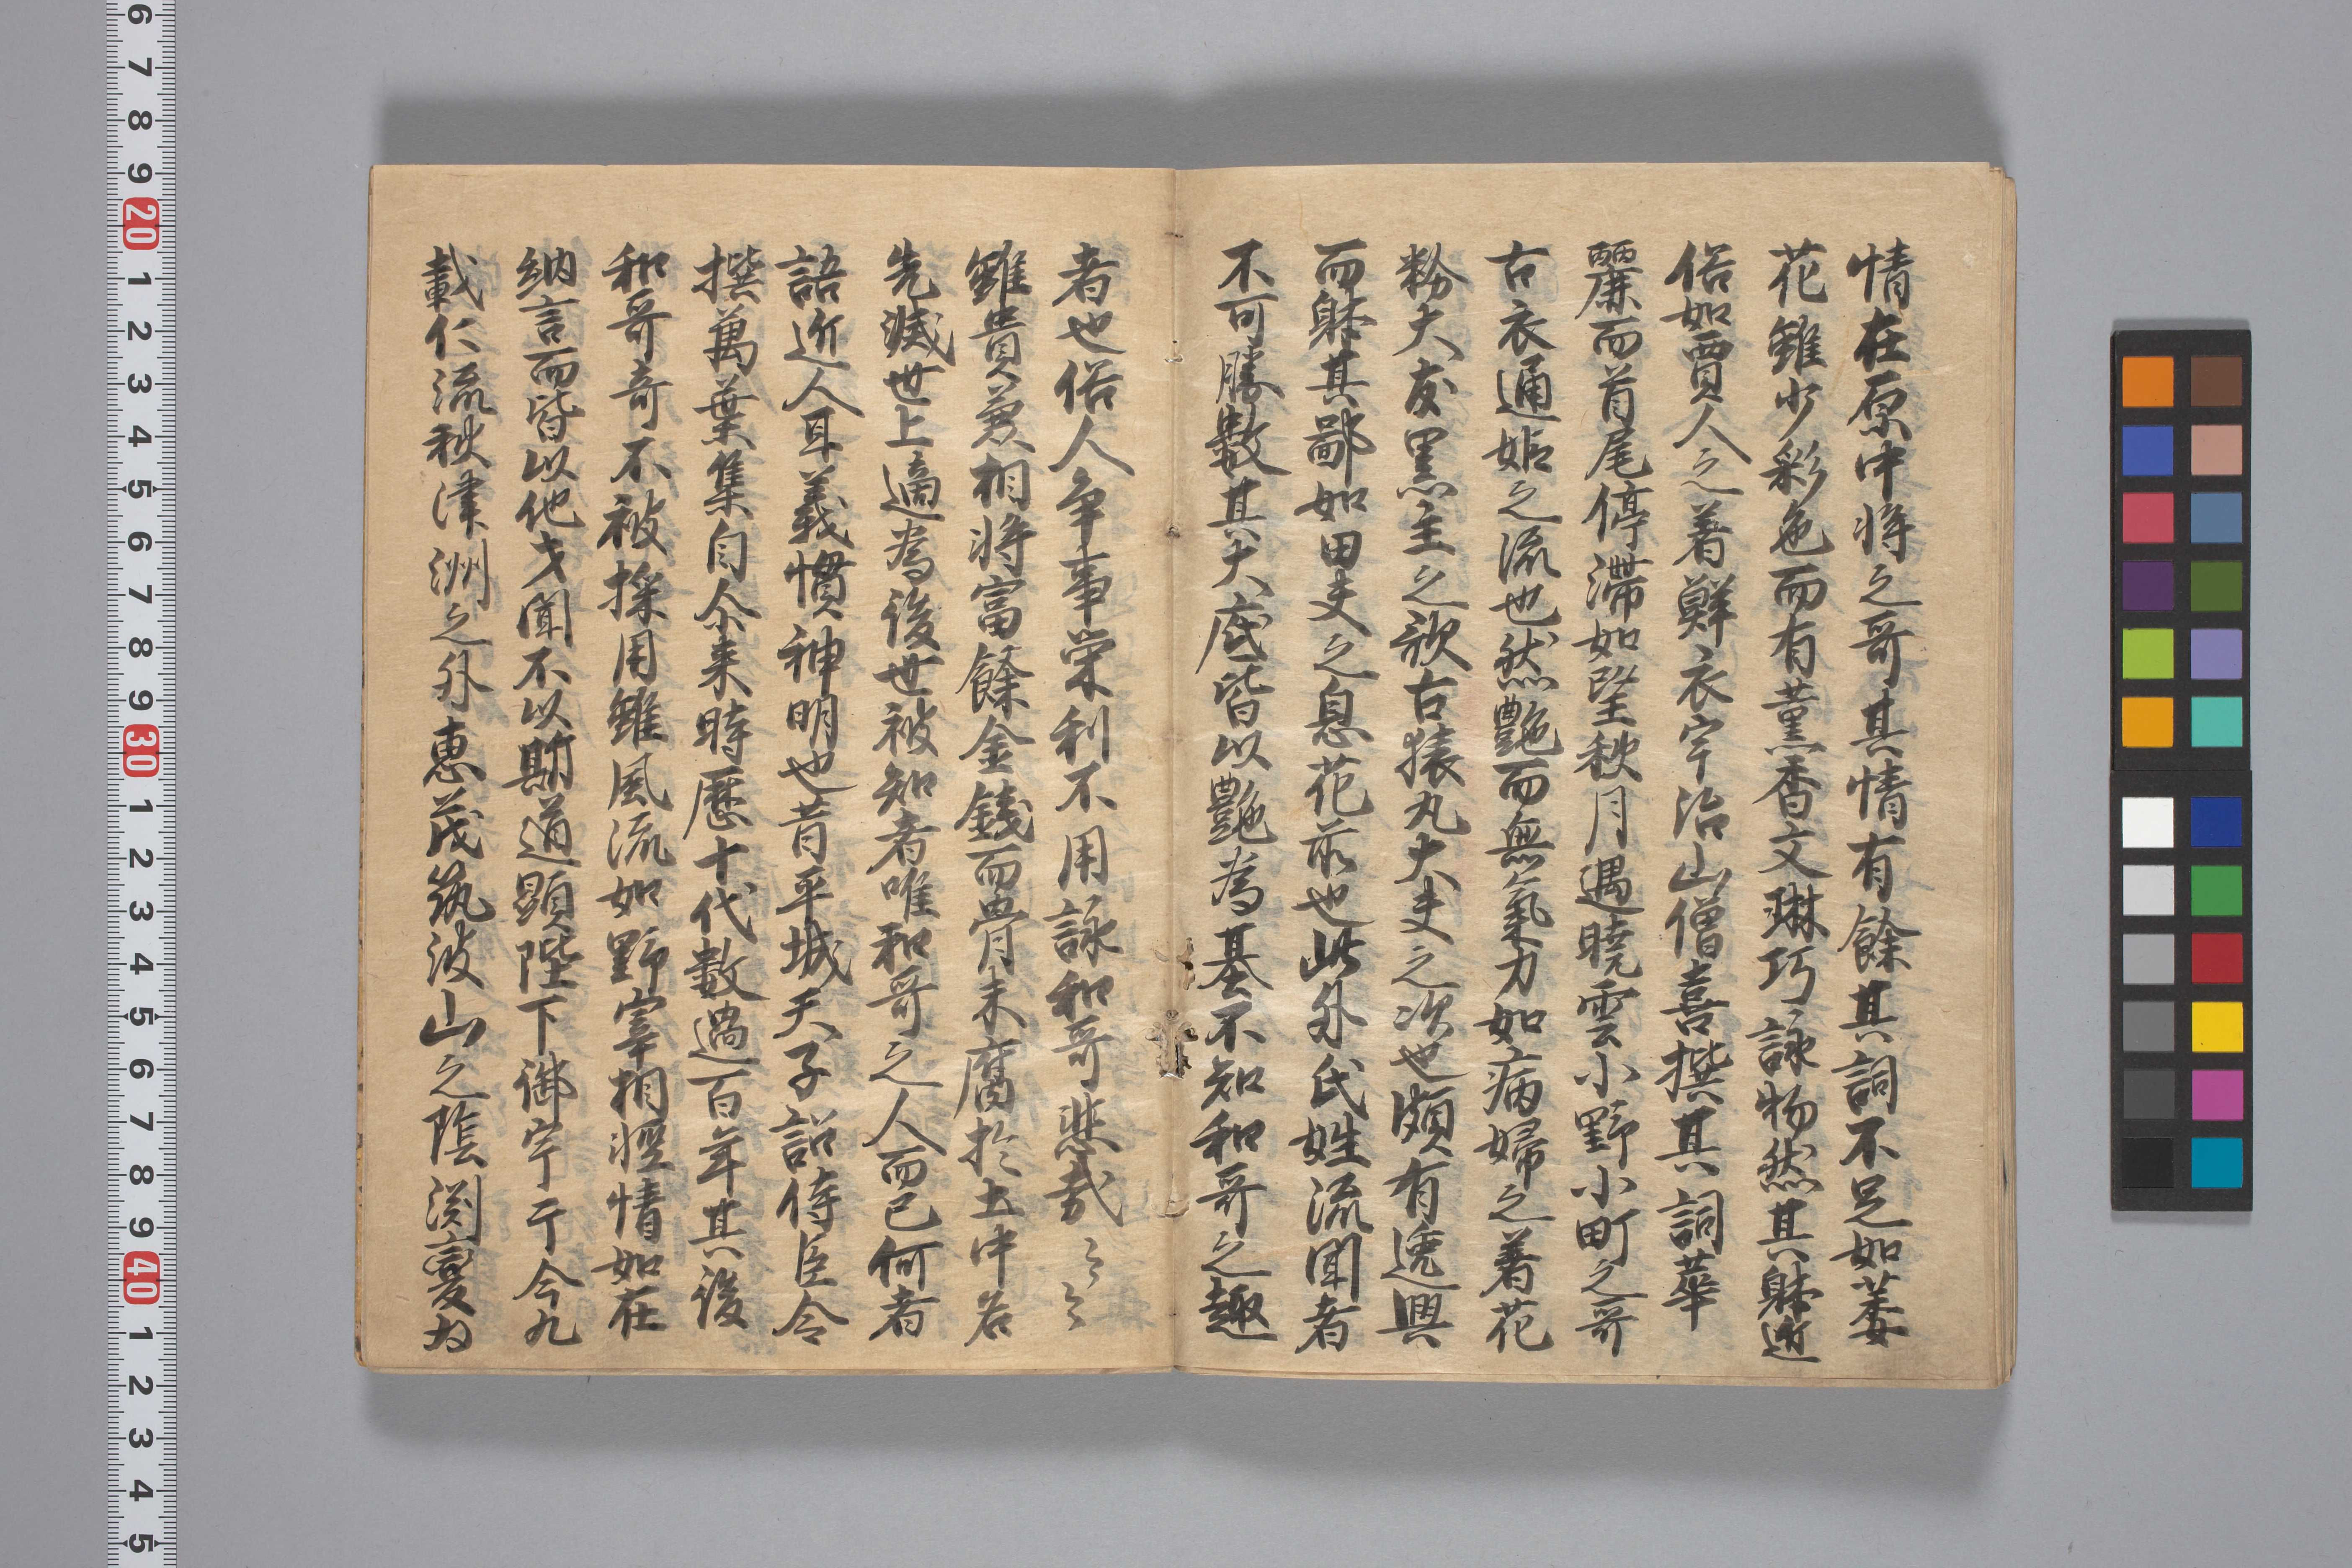 情在原中将之哥其情有餘其詞不足如萎
花雖少彩色而有薫香文琳巧詠物然其躰近
俗如賈人之着鮮衣宇治山僧喜撰其詞華
麗而首尾停滞如望秋月遇暁雲小野小町之哥
古衣通姫之流也然艶而無氣力如病婦之着花
粉大友黒主之歌古猿丸大夫之次也頗有逸興
而躰其鄙如田夫之息花前也此外氏姓流聞者
不可勝數其大底皆以艶為基不知和哥之趣
者也俗人争事栄利不用詠和哥悲哉々々
雖貴兼相将富餘金錢而骨未腐於土中名
先滅世上適為後世被知者唯和哥之人而已何者
語近人耳義慣神明也昔平城天子詔侍臣令
撰萬葉集自尒来時歴十代数過百年其後
和哥奇不被採用雖風流如野宰相軽情如在
納言而皆以他才聞不以斯道顕陛下御宇于今九
載仁流秋津洲之外恵茂筑波山之陰渕変為